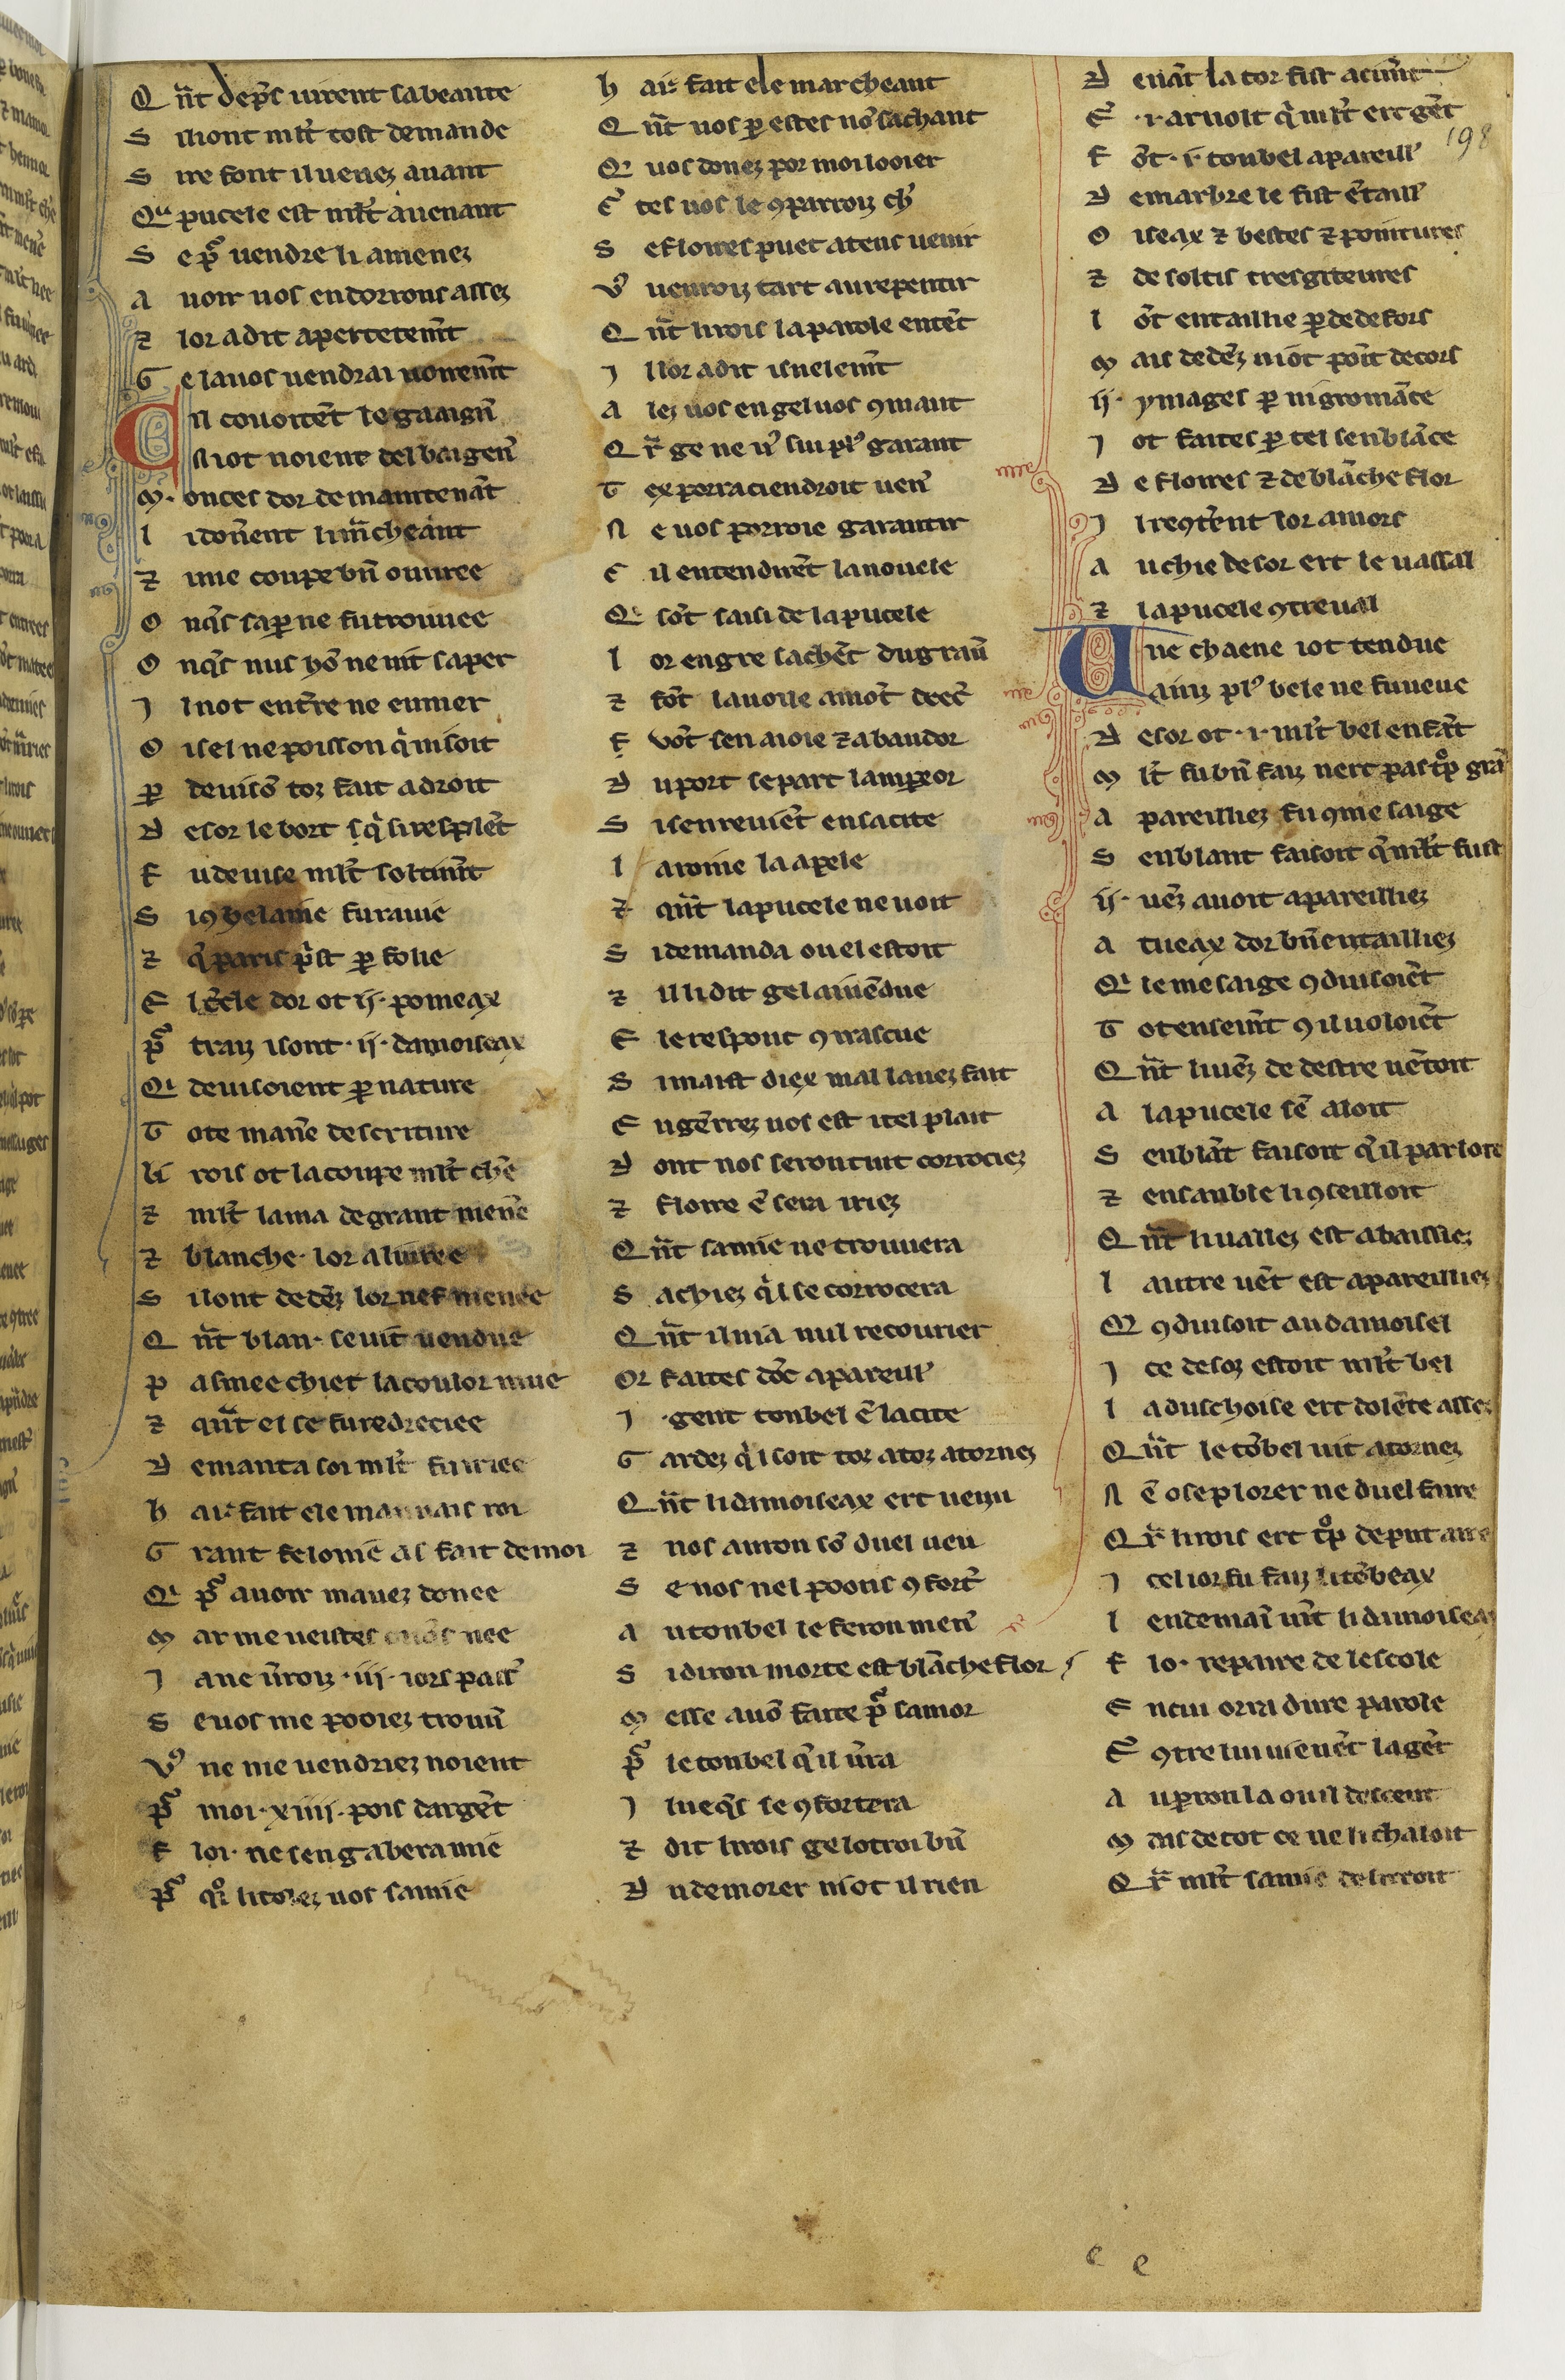 Q n̄t dep̄s uirent sa beaute
S il iont ml̄t tost demande
S ire font il uenez auant
Qu pucele est ml̄t auenant
S e pͣ uendre li amenez
A uoir uos en dorrons assez
⁊ lor a dit apertem̄t
G e la uos uendrai uoirem̄t
Cil couoitēt le gaaign̄
N iot noient del baigen̄
M · onces dor de maintenāt
l i donent li m̄cheant
⁊ une coupe bn̄ ouuree
O nq̄s sa per ne fu trouuee
O nq̄s nus hō ne uit sa per
I l not ent̄re ne eumer
O isel ne poisson q̄ ni soit
ꝑ deuisō toz fait a droit
D esor le bort sq̄ si resplēt
F u deuise ml̄t soltim̄t
S i ꝯ helaine fu rauie
⁊ q̄ paris p̄st ꝑ folie
E l cēcle dor ot ·ij· pomeax
pͣ traiz i sont ·ij· damoiseax
Qi deuisoient ꝑ nature
T ote manēe descriture
li rois ot la coupe ml̄t chēe
⁊ ml̄t lama de grant menēe
⁊ blanche· lor a liuree
S il ont dedēz lor nef menee
Q n̄t blan· se uit uendue
P asmee chiet la coulor mue
⁊ qn̄t el se fu redreciee
D emanta soi ml̄t fu iriee
h ai· fait ele mauuais roi
G rant felonie as fait de moi
Qi pͣ auoir mauez donee
M ar me ueistes onq̄s nee
I a ne ūroiz ·iij· iors pass̄
S e uos me pooiez trouū
Vͦ ne me uendriez noient
pͣ moi ·xiiij· pois dargēt
F loi· ne sen gabera mie
pͣ qͦi li tolez uos samie
h ai· fait ele marcheant
Q n̄t uos ꝑ estes nō sachant
Qi uos donez por moi looier
C̄ tes uos le ꝯparroiz ch̄
S e floires puet a tens uenir
Vͦ uenroiz tart au repentir
Q n̄t li rois la parole entēt
I l lor a dit isnelem̄t
A lez uos en gel uos ꝯmant
Q r̄ ge ne ūs sui pl̄ garant
T ex porra ci endroit uen̄
N e uos porroie garantir
C il entendirēt la nouele
Qi sōt saisi de la pucele
l or engre sachēt du grau̅
⁊ fōt la uoile amōt deeē
F vōt sen a ioie ⁊ a baudor
D u port se part lampeor
S isen reuiēt en sa cite
l a roine la apele
⁊ qn̄t la pucele ne uoit
S i demanda ou el estoit
⁊ il li dit gel ai uēdue
E le respont ꝯ irascue
S i maist diex mal lauez fait
E ngēirez uos est itel plait
D ont nos seron tuit corrociez
⁊ floire ē sera iriez
Q n̄t samie ne trouuera
S achiez q̄l se corrocera
Q n̄t il ni a nul recourier
Or faites dōc apareill̄
I ·gent tonbel ē la cite
G ardez q̄l soit toz atoz atornez
Q n̄t li damoiseax ert uenu
⁊ nos auron sō duel ueu
S e nos nel poons ꝯfort̄
A u tonbel le feron men̄
S i diron morte est blācheflor
M esse auō faite pͣ samor
pͣ le tonbel q̄ il ūra
I lueq̄s se ꝯfortera
⁊ dit li rois ge lotroi bn̄
D u demorer ni ot il rien
D euāt la tor fist acim̄t
E̅ ·i· aruolt q̄ ml̄t ert gēt
F ōt ·i· tonbel apareill̄
D e marbre le fist ētaill̄
O iseax ⁊ bestes ⁊ pointures
⁊ de soltis tresgiteures
l ōt entaillie ꝑ dedefors
M ais dedēz ni ot poīt de cors
ij· ymages ꝑ nigromāce
I ot faites ꝑ tel senblāce
D e floires ⁊ de blācheflor
I l req̄rent lor amors
A uchie desor ert le uassal
⁊ la pucele ꝯtreual
Une chaene i ot tendue
Ainz pl̄ bele ne fu ueue
D esor ot ·i· ml̄t bel enfāt
M l̄t fu bn̄ faiz nert pas tͦp grāt
A pareilliez fu ꝯme saige
S enblant faisoit q̄ ml̄t fust
ij· uēz auoit apareilliez
A tueax dor bn̄ entailliez
Qi le mesaige ꝯduisoiēt
T ot ensem̄t ꝯ il uoloiēt
Q n̄t li uēz de destre uētoit
A la pucele sē aloit
S enblāt faisoit q̄ il parloit
⁊ ensanble li ꝯseilloit
Q n̄t li uallez est abaissiez
l autre uēt est apareilliez
Qi ꝯduisoit au damoisel
I ce desoz estoit ml̄t bel
l a duschoise ert dolēte assez
Q n̄t le tōbel uit atornez
N ē ose plorer ne duel faire
Q r̄ li rois ert tͦp de put aire
I cel ior fu faiz li tōbeax
l endemai̅ uīt li damoiseax
F lo· repaire de lescole
E ncui orra dure parole
E̅ ꝯtre lui uienēt la gēt
A u perron la ou il descent
M ais de tot ce ne li chaloit
Q r̄ ml̄t samie desirroit
198
e e